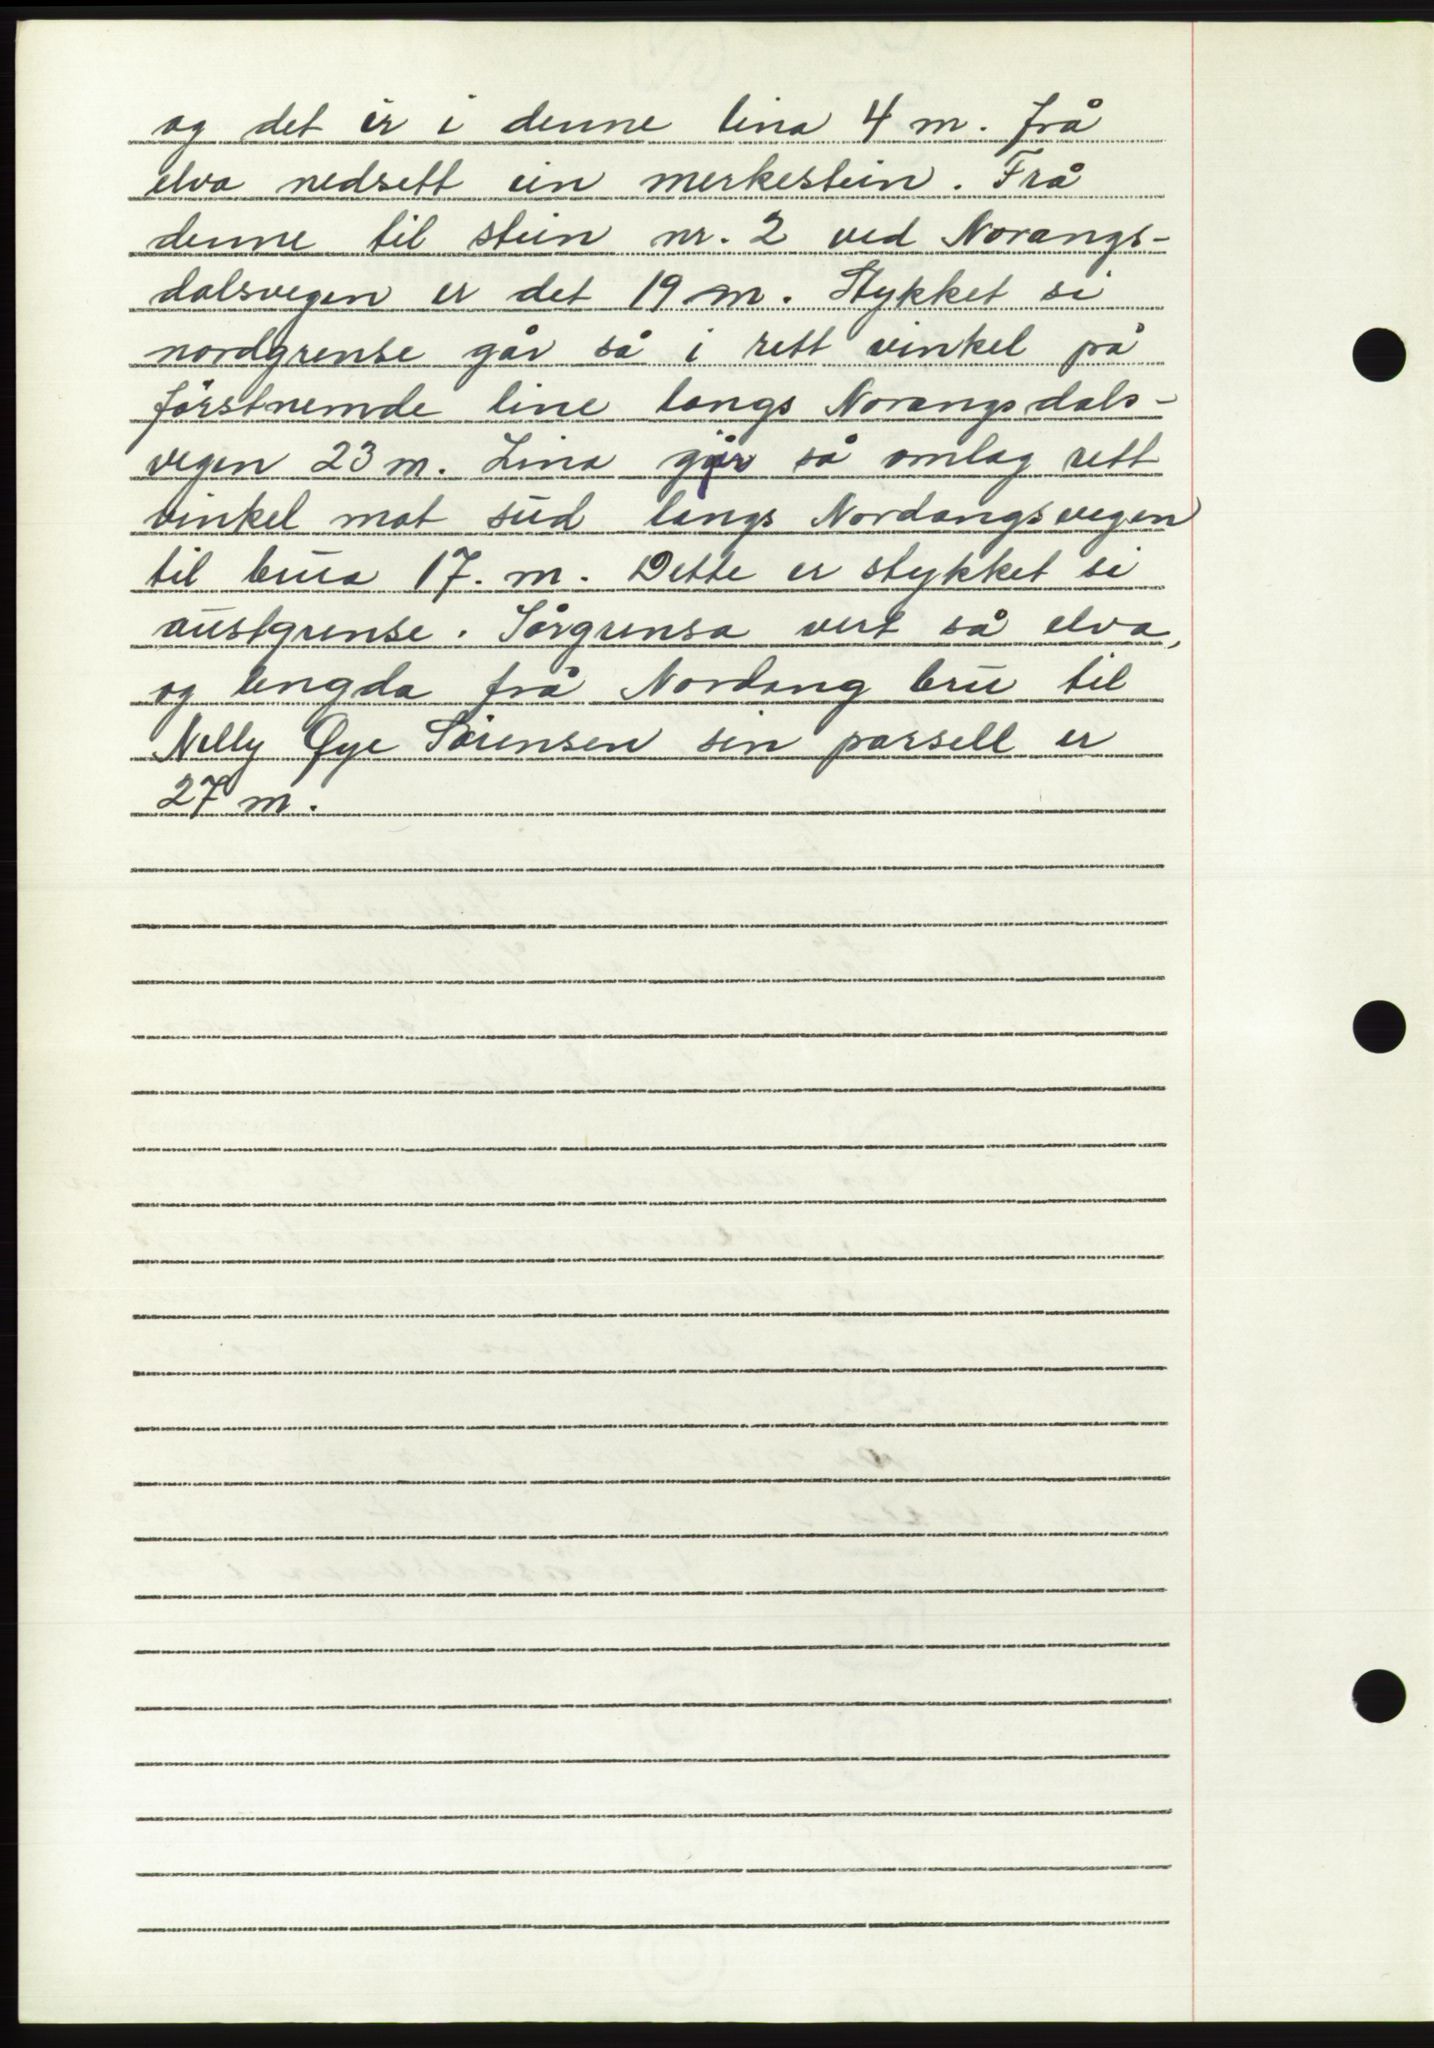 og det er i denne lina 4 m. frå
elva nedsett ein merkestein. Frå
denne til stein nr. 2 ved Norangs-
dalsvegen er det 19 m. Stykket si
nordgrense går så i rett vinkel på
förstnemde line langs Norangsdals-
vegen 23 m. Lina går så omlag rett
vinkel mot süd langs Nordangsvegen
til brüa 17. m. Dette er stykket si
aüstgrense. Sörgrensa vert så elva,
og lengda frå Nordang brü til
Nelly Øye Sörensen sin parsell er
27 m.